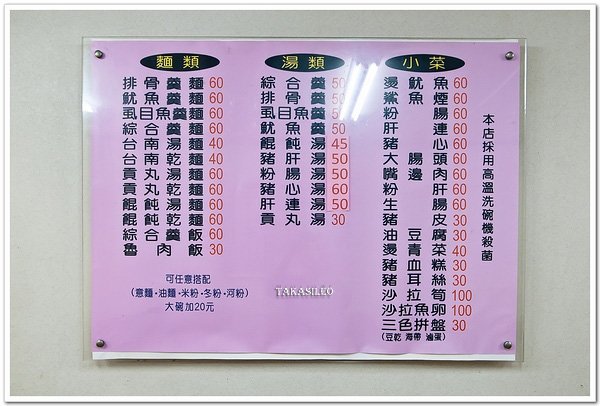 麵類
排骨羹麵 60
魷魚羹麵 60
虱目魚羹麵 60
綜合羹麵 60
台南湯麵 40
台南乾麵 40
貢丸湯麵 60
貢丸乾麵 60
餛飩湯麵 60
餛飩乾麵 60
綜合羹飯 60
魯肉飯 30
可任意搭配
(意麵·油麵·米粉·冬粉·河粉)
大碗加20元
湯類
綜合羹 50
排骨羹 50
虱目魚羹 50
魷魚羹 50
餛飩湯 45
豬肝湯 50
粉腸湯 50
豬心湯 60
肝連湯 50
貢丸湯 30
TAKASILEO
小菜
燙魷魚 60
鯊魚煙 60
粉腸 60
肝連 60
豬心 60
大腸頭 60
嘴邊肉 60
粉肝 60
生腸 60
豬皮 30
油豆腐 30
燙青菜 40
豬血糕 30
豬耳絲 30
沙拉筍 100
沙拉魚卵 100
三色拼盤 30
(豆乾 海帶 滷蛋)
本店採用高溫洗碗機殺菌